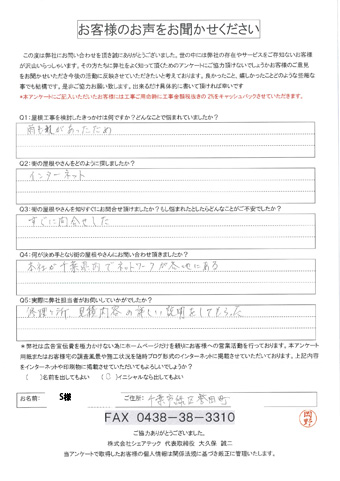 お客様のお声をお聞かせください
この度は弊社にお問い合わせを頂き誠にありがとうございました。世の中には弊社の存在やサービスをご存知ないお客様
が沢山いらっしゃいます。その方たちに弊社をよく知って頂くためのアンケートにご協力頂けないでしょうかお客様のご意見
をお聞かせいただき今後の活動に反映させていただきたいと考えております。良かったこと、嬉しかったことどのような些細な
事でも結構です。是非ご協力お願い致します。出来るだけ具体的に書いて頂ければ幸いです
*本アンケートにご記入いただいたお客様には工事ご用命時に工事金額税抜きの2%をキャッシュバックさせていただきます。
Q1:屋根工事を検討したきっかけは何ですか?どんなことで悩まれていましたか?
雨もりがあったため
Q2:街の屋根やさんをどのように探しましたか?
インターネット
Q3:街の屋根やさんを知りすぐにお問合せ頂けましたか?もし悩まれたとしたらどんなことがご不安でしたか?
すぐに問合せした
Q4:何が決め手となり街の屋根やさんにお問い合わせ頂けましたか?
本社が千葉県内でネットワークが各地にある
Q5:実際に弊社担当者がお伺いしていかがでしたか?
修理ヶ所 見積内容の詳しい説明をしてもらった
*弊社は広告宣伝費を極力かけない為にホームページだけを頼りにお客様への営業活動を行っております。本アンケート
用紙またはお客様宅の調査風景や施工状況を随時ブログ形式のインターネットに掲載させていただいております。上記内容
をインターネットや印刷物に掲載させていただいてもよろしいでしょうか?
( )名前を出してもよい (○)イニシャルなら出してもよい
お名前: S様 ご住所: 千葉市緑区誉田町
FAX 0438-38-3310
ご協力ありがとうございました。
株式会社シェアテック 代表取締役 大久保 誠二
当アンケートで取得したお客様の個人情報は関係法規に基づき厳正に管理いたします。